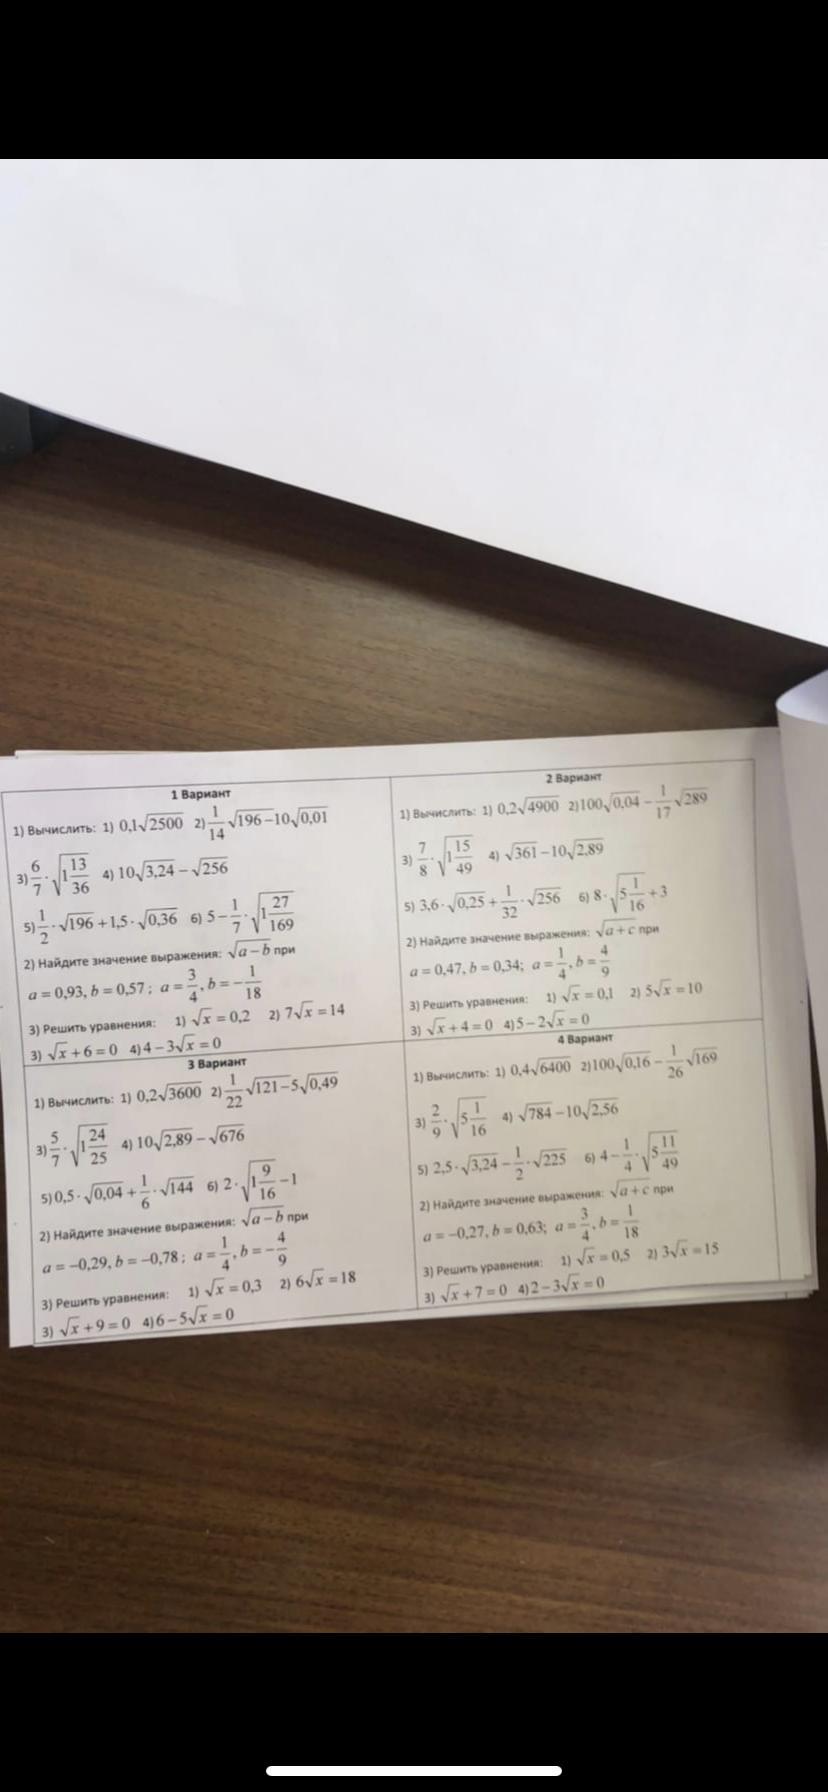 1 Вариант
1) Вычислить: 1) 0,1√2500 2) 1/14 √196 – 10√0,01
3) 6/7 · √(1 13/36) 4) 10√3,24 – √256
5) 1/2 · √196 + 1,5 · √0,36 6) 5 – 1/7 · √(1 27/169)
2) Найдите значение выражения: √(a – b) при
a = 0,93, b = 0,57 ; a = 3/4, b = – 1/18
3) Решить уравнения: 1) √x = 0,2 2) 7√x = 14
3) √x + 6 = 0 4) 4 – 3√x = 0
2 Вариант
1) Вычислить: 1) 0,2√4900 2) 100√0,04 – 1/17 √289
3) 7/8 · √(1 15/49) 4) √361 – 10√2,89
5) 3,6 · √0,25 + 1/32 · √256 6) 8 · √(5 1/16) + 3
2) Найдите значение выражения: √(a + c) при
a = 0,47, b = 0,34; a = 1/4, b = 4/9
3) Решить уравнения: 1) √x = 0,1 2) 5√x = 10
3) √x + 4 = 0 4) 5 – 2√x = 0
3 Вариант
1) Вычислить: 1) 0,2√3600 2) 1/22 √121 – 5√0,49
3) 5/7 · √(1 24/25) 4) 10√2,89 – √676
5) 0,5 · √0,04 + 1/6 · √144 6) 2 · √(1 9/16) – 1
2) Найдите значение выражения: √(a – b) при
a = –0,29, b = –0,78 ; a = 1/4, b = – 4/9
3) Решить уравнения: 1) √x = 0,3 2) 6√x = 18
3) √x + 9 = 0 4) 6 – 5√x = 0
4 Вариант
1) Вычислить: 1) 0,4√6400 2) 100√0,16 – 1/26 √169
3) 2/9 · √(5 1/16) 4) √784 – 10√2,56
5) 2,5 · √3,24 – 1/2 · √225 6) 4 – 1/4 · √(5 11/49)
2) Найдите значение выражения: √(a + c) при
a = –0,27, b = 0,63; a = 3/4, b = 1/18
3) Решить уравнения: 1) √x = 0,5 2) 3√x = 15
3) √x + 7 = 0 4) 2 – 3√x = 0